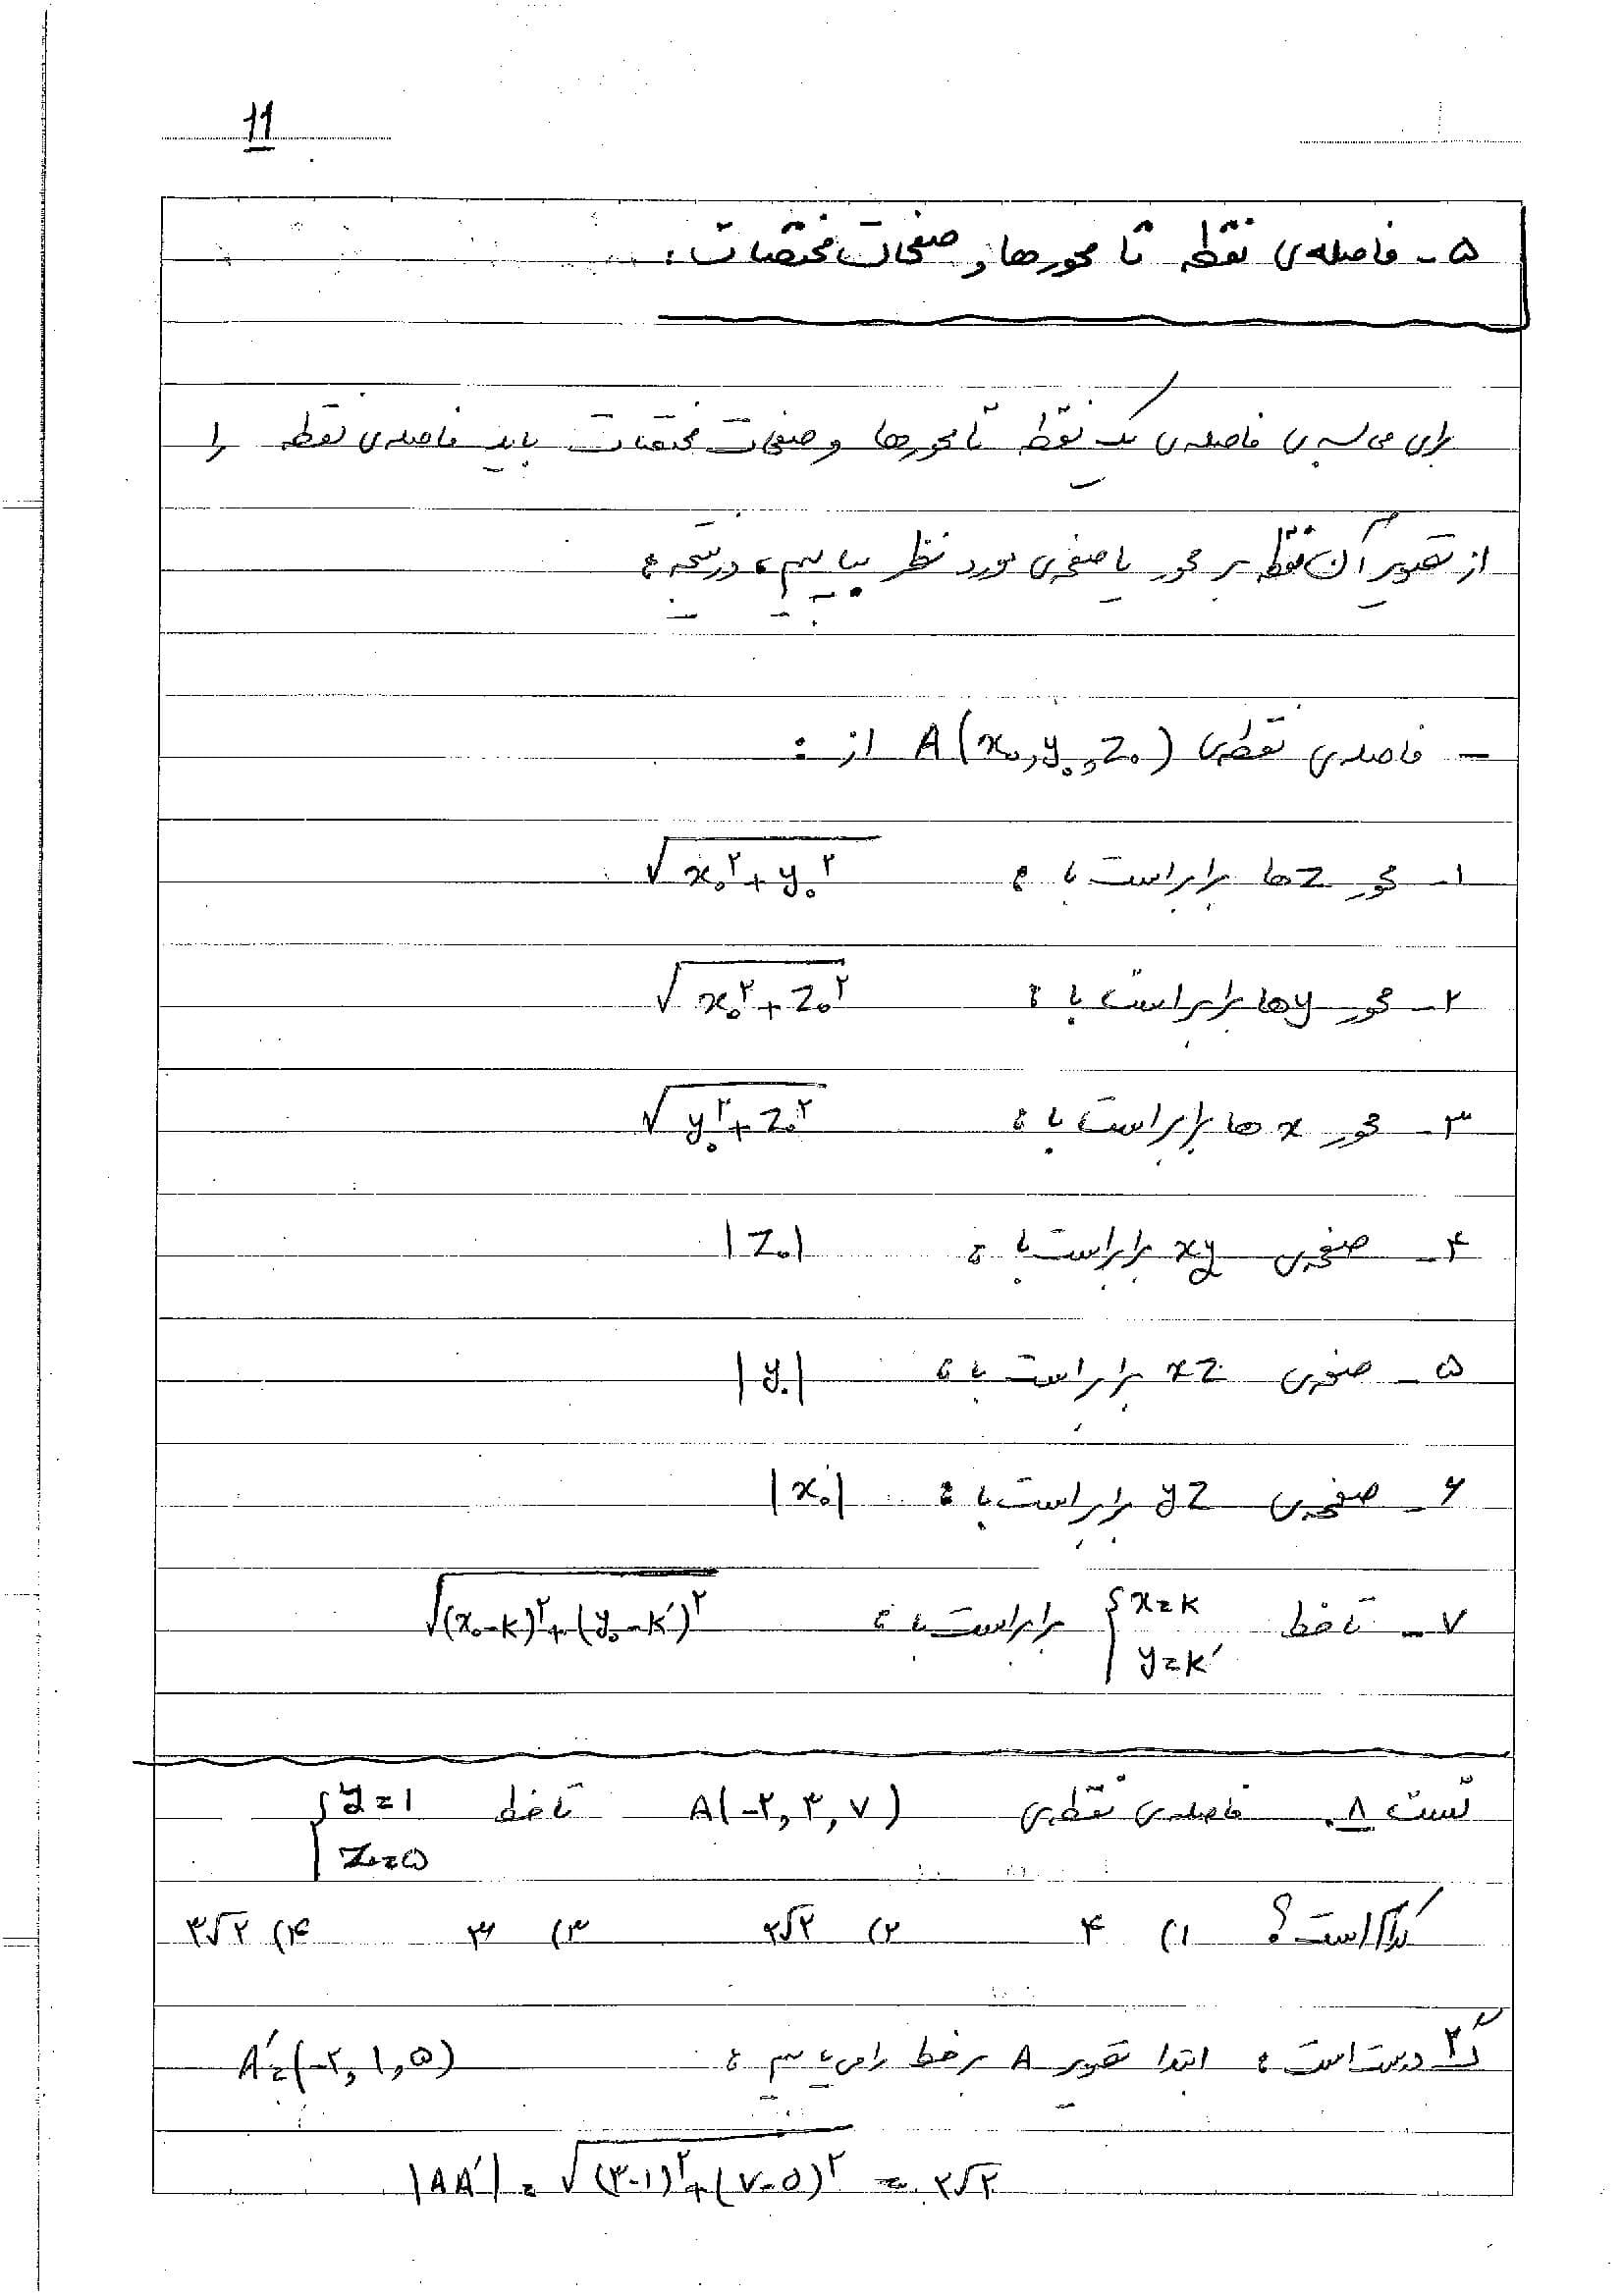 ۱۱
۵- فاصله‌ی نقطه تا محورها و صفحات مختصات:
برای محاسبه‌ی فاصله‌ی یک نقطه تا محورها و صفحات مختصات باید فاصله‌ی نقطه را
از تصویر آن نقطه بر محور یا صفحه‌ی مورد نظر بیابیم، در نتیجه:
- فاصله‌ی نقطه‌ی A(x₀, y₀, z₀) از:
۱- محور zها برابر است با: √(x₀²+y₀²)
۲- محور yها برابر است با: √(x₀²+z₀²)
۳- محور xها برابر است با: √(y₀²+z₀²)
۴- صفحه‌ی xy برابر است با: |z₀|
۵- صفحه‌ی xz برابر است با: |y₀|
۶- صفحه‌ی yz برابر است با: |x₀|
۷- تا خط {x=k, y=k′ برابر است با: √((x₀-k)²+(y₀-k′)²)
تست ۸. فاصله‌ی نقطه‌ی A(-۲, ۳, ۷) تا خط {y=۱, z=۵
کدام است؟ ۱) ۴ ۲) ۲√۲ ۳) ۳ ۴) ۳√۲
گ۲ درست است: ابتدا تصویر A بر خط را می‌یابیم: A′=(-۲, ۱, ۵)
|AA′| = √((۳-۱)²+(۷-۵)²) = ۲√۲